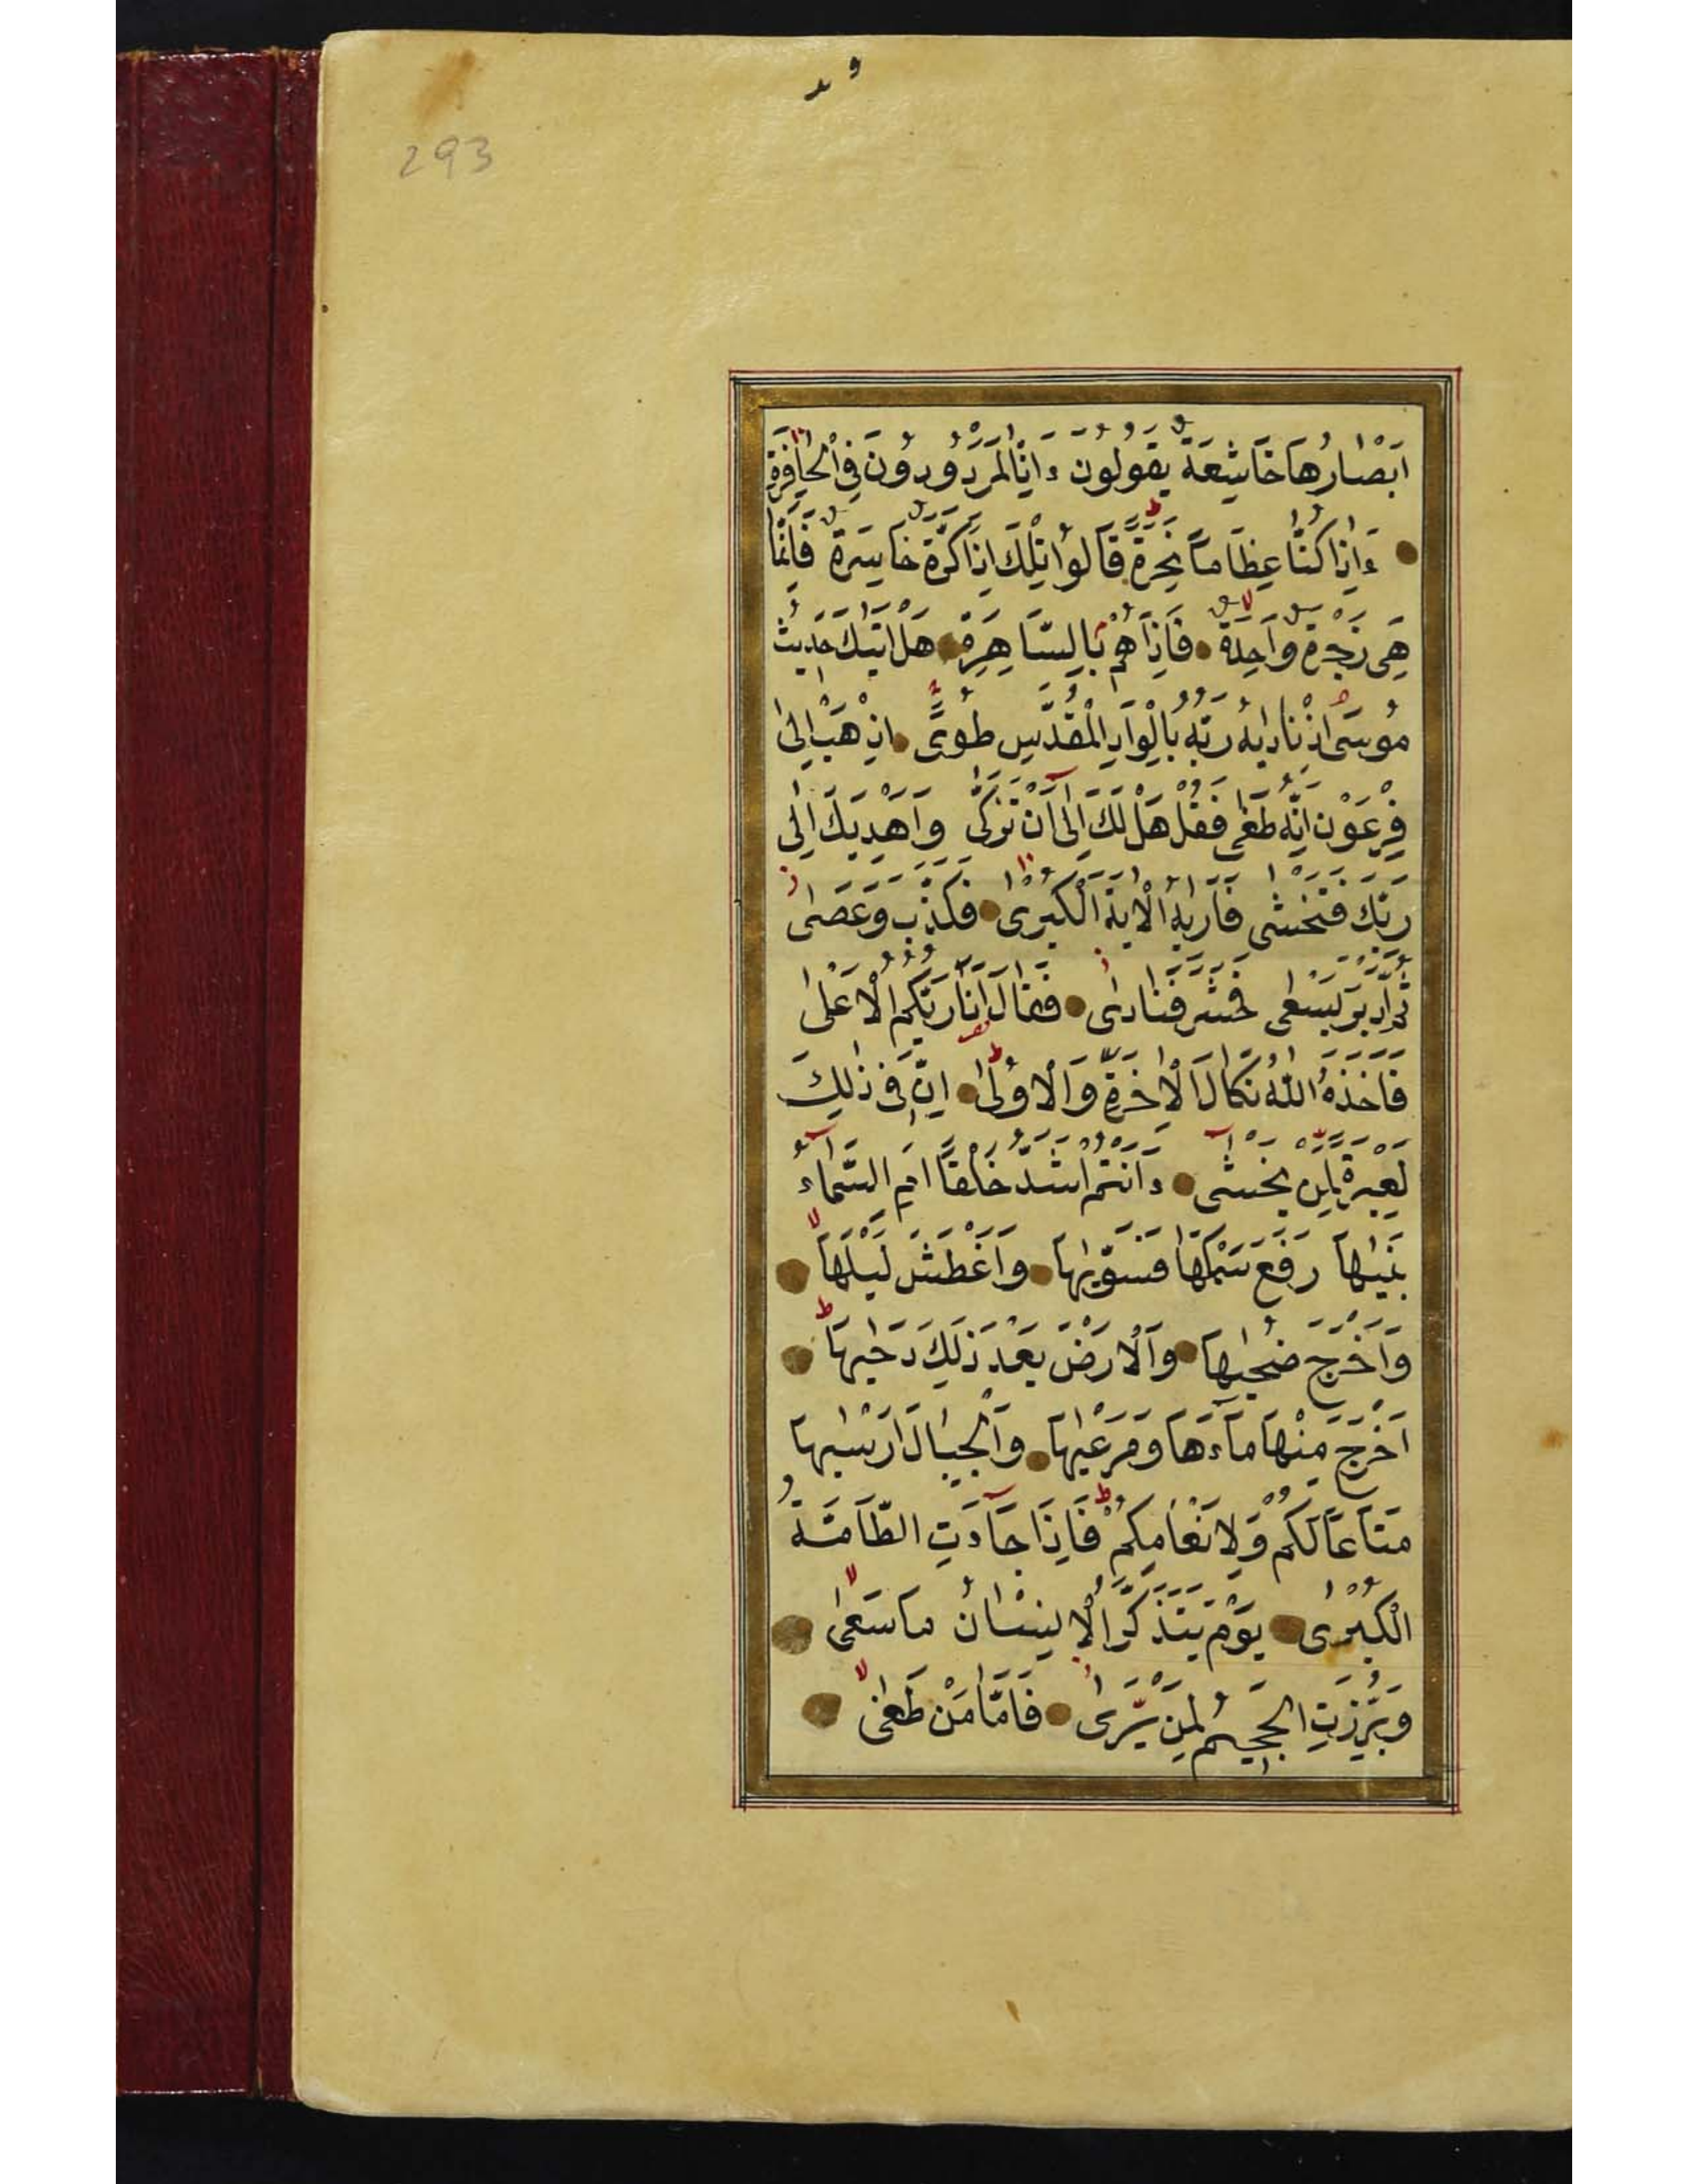 293
اَبْصَارُهَا خَاشِعَةٌ يَقُولُونَ ءَاِنَّا لَمَرْدُودُونَ فِى الْحَافِرَةِ
ءَاِذَا كُنَّا عِظَامًا نَخِرَةً قَالُوا تِلْكَ اِذًا كَرَّةٌ خَاسِرَةٌ فَاِنَّمَا
هِىَ زَجْرَةٌ وَاحِدَةٌ فَاِذَا هُمْ بِالسَّاهِرَةِ هَلْ اَتٰيكَ حَدِيثُ
مُوسٰى اِذْ نَادٰيهُ رَبُّهُ بِالْوَادِ الْمُقَدَّسِ طُوًى اِذْهَبْ اِلٰى
فِرْعَوْنَ اِنَّهُ طَغٰى فَقُلْ هَلْ لَكَ اِلٰى اَنْ تَزَكّٰى وَاَهْدِيَكَ اِلٰى
رَبِّكَ فَتَخْشٰى فَاَرٰيهُ الْاٰيَةَ الْكُبْرٰى فَكَذَّبَ وَعَصٰى
ثُمَّ اَدْبَرَ يَسْعٰى فَحَشَرَ فَنَادٰى فَقَالَ اَنَا رَبُّكُمُ الْاَعْلٰى
فَاَخَذَهُ اللّٰهُ نَكَالَ الْاٰخِرَةِ وَالْاُولٰى اِنَّ فِى ذٰلِكَ
لَعِبْرَةً لِمَنْ يَخْشٰى ءَاَنْتُمْ اَشَدُّ خَلْقًا اَمِ السَّمَاءُ
بَنٰيهَا رَفَعَ سَمْكَهَا فَسَوّٰيهَا وَاَغْطَشَ لَيْلَهَا
وَاَخْرَجَ ضُحٰيهَا وَالْاَرْضَ بَعْدَ ذٰلِكَ دَحٰيهَا
اَخْرَجَ مِنْهَا مَاءَهَا وَمَرْعٰيهَا وَالْجِبَالَ اَرْسٰيهَا
مَتَاعًا لَكُمْ وَلِاَنْعَامِكُمْ فَاِذَا جَاءَتِ الطَّامَّةُ
الْكُبْرٰى يَوْمَ يَتَذَكَّرُ الْاِنْسَانُ مَا سَعٰى
وَبُرِّزَتِ الْجَحِيمُ لِمَنْ يَّرٰى فَاَمَّا مَنْ طَغٰى